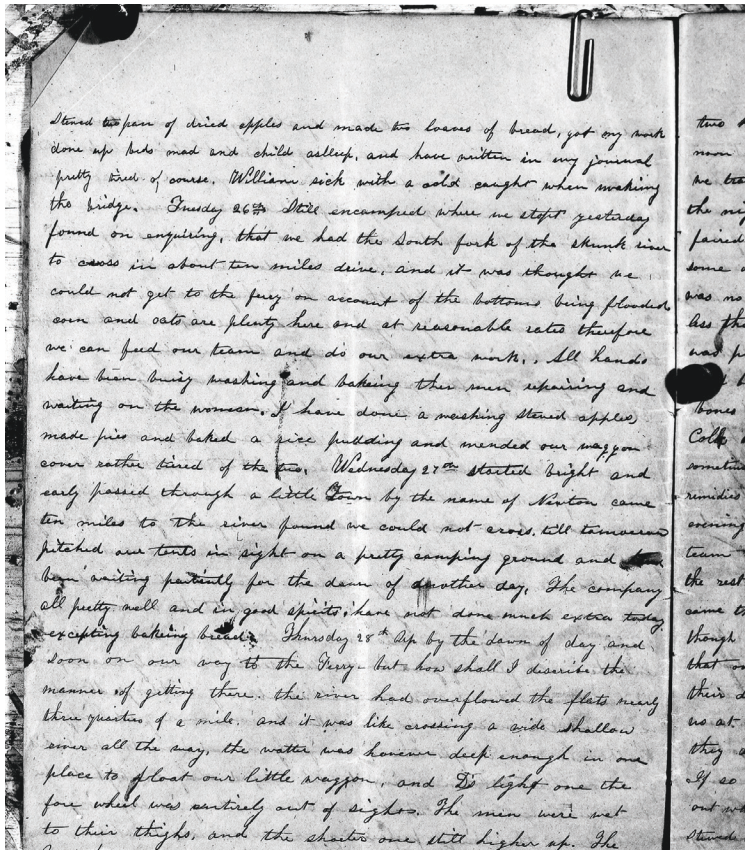 Stewed two pan of dried apples and made two loaves of bread, got my work
done up beds mad and child asleep, and have written in my journal
pretty tired of course. William sick with a cold caught when making
the bridge. Tuesday 26th Still encamped where we stopt yestaday
found on enquiring, that we had the South fork of the skunk river
to cross in about ten miles drive, and it was thought we
could not get to the fery on account of the bottoms being flooded
corn and oats are plenty here and at reasonable rates therefore
we can feed our team and do our extra work. All hands
have been busy washing and bakeing the men repairing and
waiting on the women. I have done a washing stewed apples
made pies and baked a rice pudding and mended our waggon
cover rather tired of the two. Wednesday 27th started bright and
early passed through a little Town by the name of Newton came
ten miles to the river found we could not cross till tomorrow
pitched our tents in sight on a pretty camping ground and
been waiting patiently for the dawn of another day, The company
all pretty well and in good spirits, have not done much extra today
excepting bakeing bread. Thursday 28th Up by the dawn of day and
soon on our way to the Ferry but how shall I discribe the
manner of gitting there. the river had overflowed the flats nearly
three quarters of a mile. and it was like crossing a wide shallow
river all the way, the watter was however deep enough in one
place to float our little waggon, and D's light one the
fore wheel was entirely out of sight. The men were wet
to their thighs, and the shorter one still higher up. The
two
noon
we tra
the nig
paired
some
was no
Ass the
was p
bones
sometim
remidies
evening
team
the rest
came th
though
that on
their d
us at
they a
If so
out w
stewed